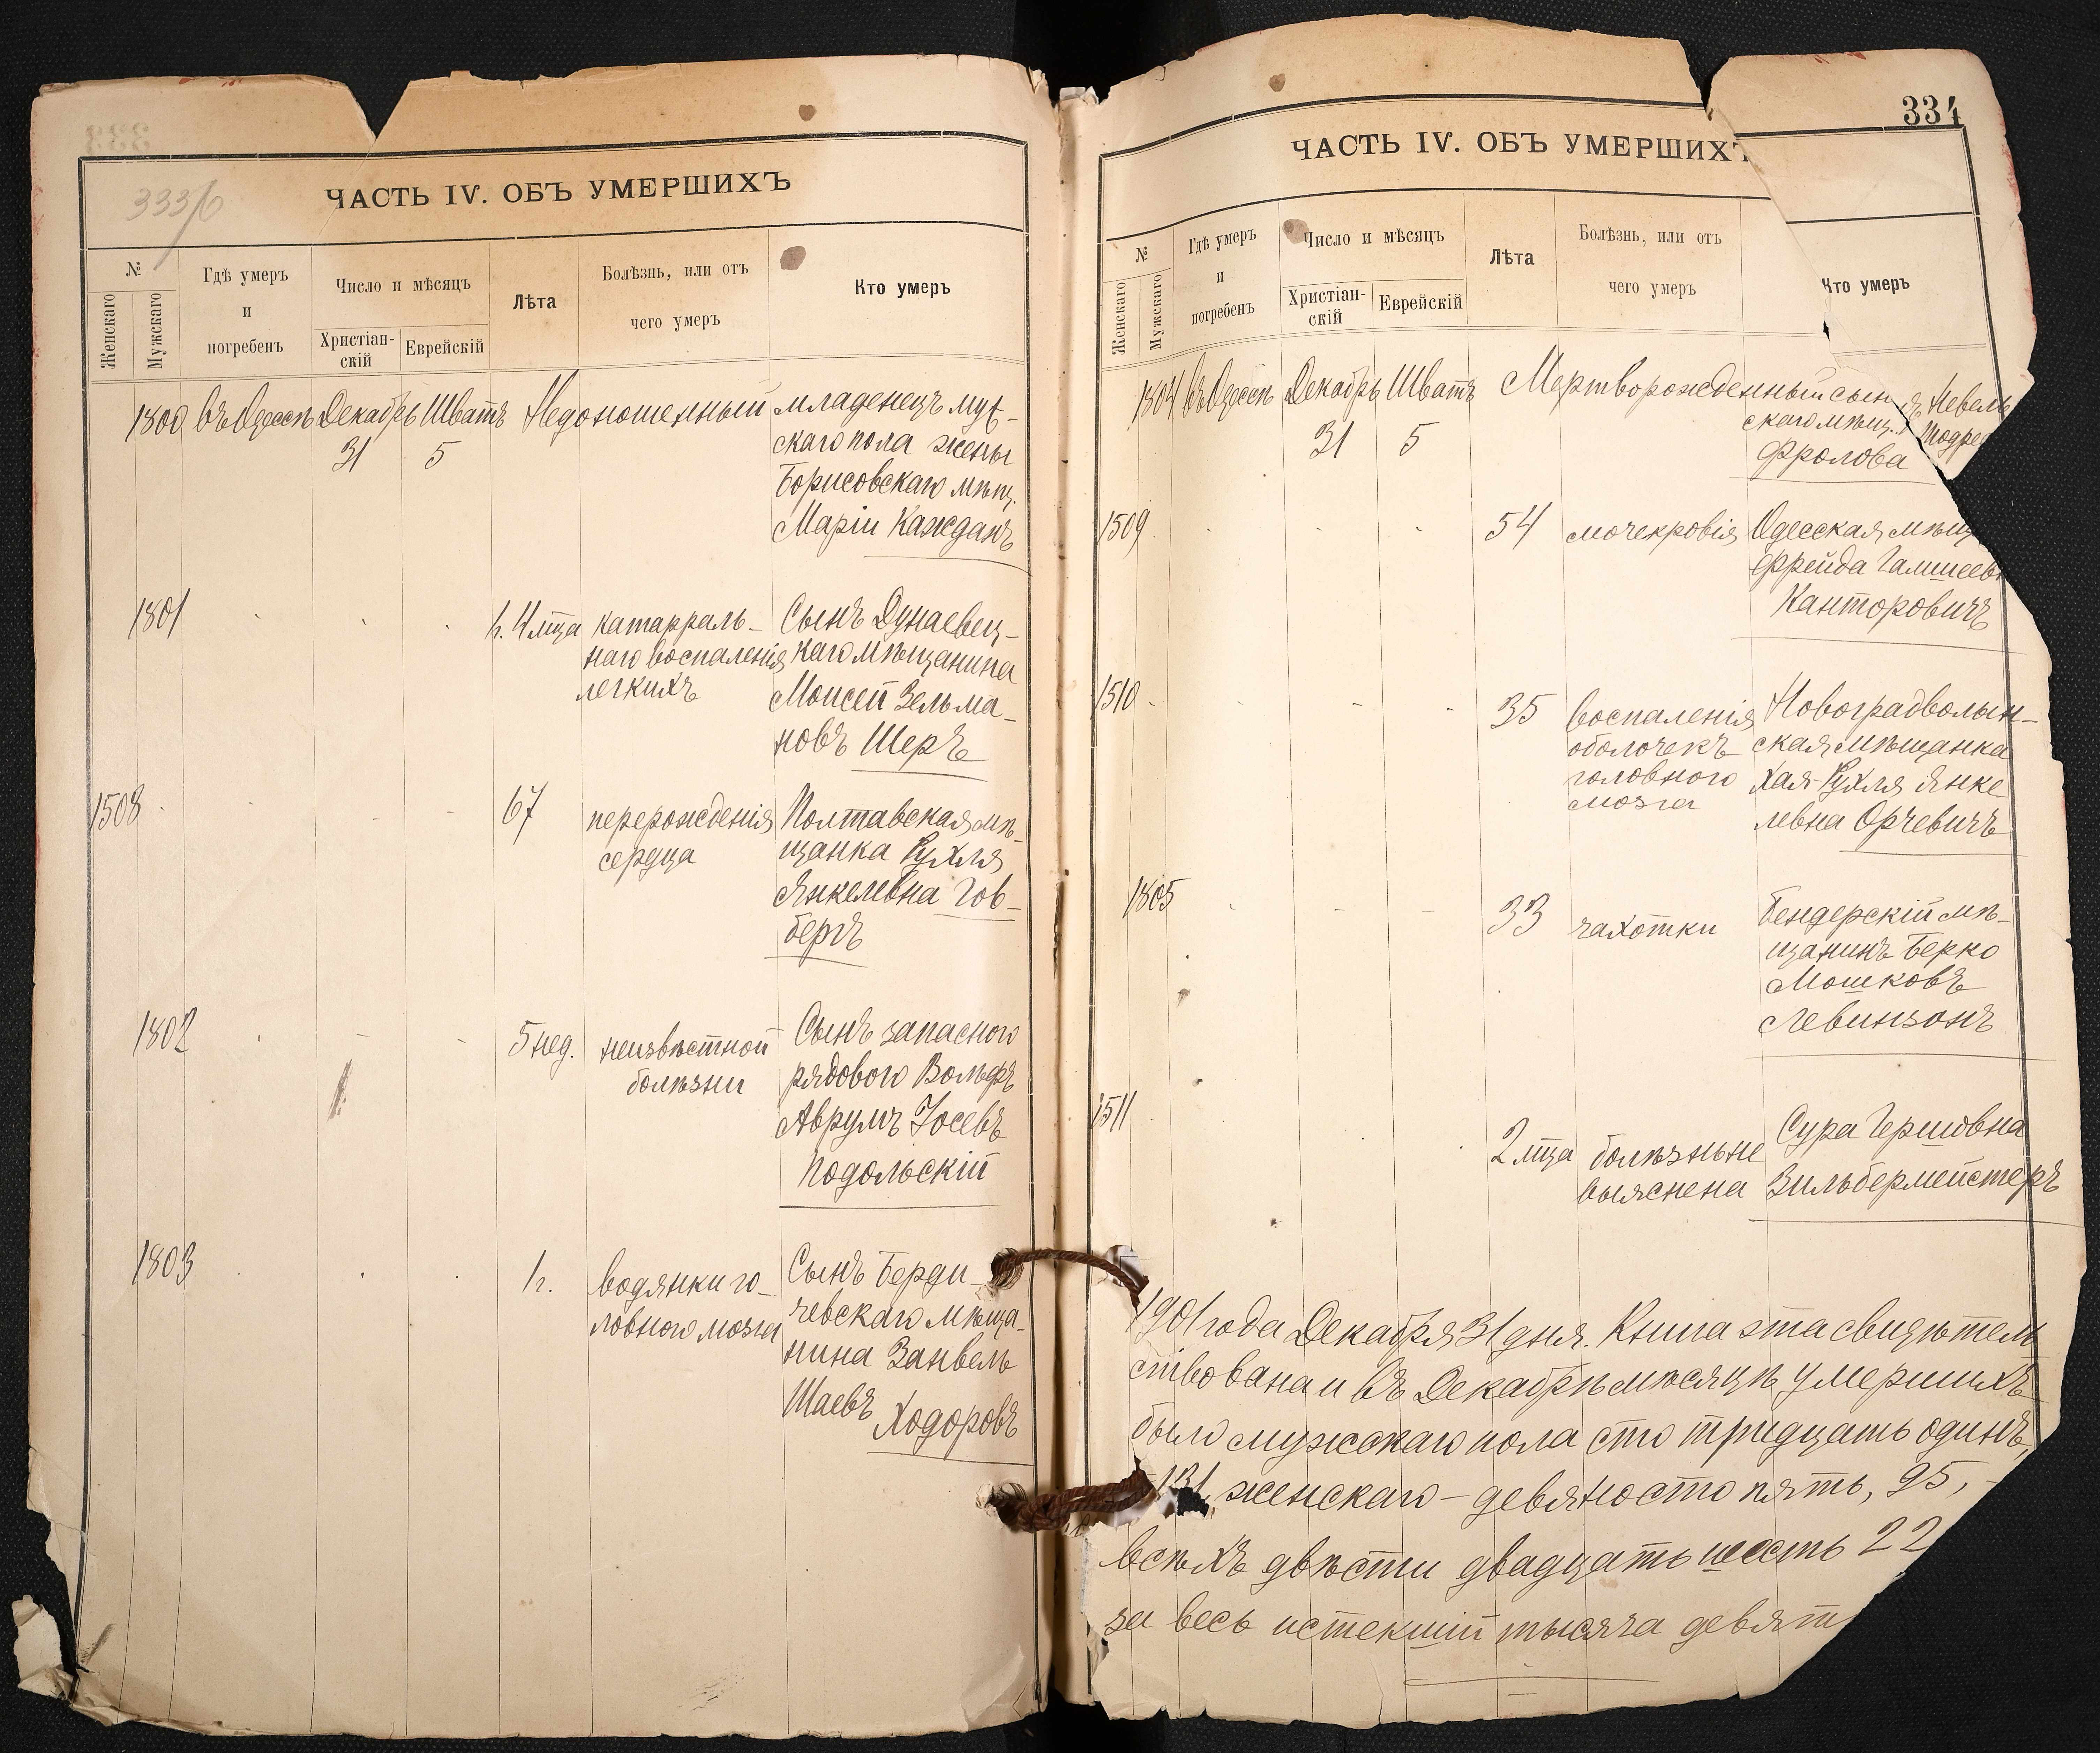 333/б
ЧАСТЬ IV. ОБЪ УМЕРШИХЪ
№
Женскаго
Мужскаго
Гдѣ умеръ
и
погребенъ
Число и мѣсяцъ
Христіан-
скій
Еврейскій
Лѣта
Болѣзнь, или отъ
чего умеръ
Кто умеръ
1800 Въ Одессѣ Декабрь Шватъ Недоношенный младенецъ муж-
31 5 скаго пола жены
Борисовскаго мѣщ.
Маріи Кажданъ
1801 1 г. 4 мѣца катарраль- Сынъ Дунаевец-
наго воспаленія каго мѣщанина
легкихъ Моисей Зельма-
новъ Шеръ
1508 67 перерожденія Полтавская мѣ-
сердца щанка Рухля
Янкелевна Гов-
бергъ
1802 5 нед. неизвѣстной Сынъ запаснаго
болѣзни рядового Вольфъ
Аврумъ Іосевъ
Подольскій
1803 1 г. водянки го- Сынъ Берди-
ловного мозга чевскаго мѣща-
нина Занвель
Шаевъ Ходоровъ
334
ЧАСТЬ IV. ОБЪ УМЕРШИХЪ
№
Женскаго
Мужскаго
Гдѣ умеръ
и
погребенъ
Число и мѣсяцъ
Христіан-
скій
Еврейскій
Лѣта
Болѣзнь, или отъ
чего умеръ
Кто умеръ
1804 Въ Одессѣ Декабрь Шватъ Мертворожденный сын Невель
31 5 скаго мѣщ.
Фролова
1509 54 мочекровія Одесская мѣщ
Фрейда
Канторовичъ
1510 35 воспаленія Новоградволын-
оболочекъ ская мѣщанка
головного Хая-Рухля Янке
мозга левна Орчевичъ
1805 33 чахотки Бендерскій мѣ-
щанинъ Берко
Мошковъ
Левинзонъ
1511 2 мѣца болѣзнь не Сура Гершовна
выяснена Зильбермейстеръ
1901 года Декабря 31 дня. Книга эта свидѣтель
ствована и въ Декабрѣ мѣсяцѣ умершихъ
было мужскаго пола сто тридцать одинъ,
131, женскаго - девяносто пять, 95, -
всѣхъ двѣсти двадцать шесть 22
за весь истекшій тысяча девят